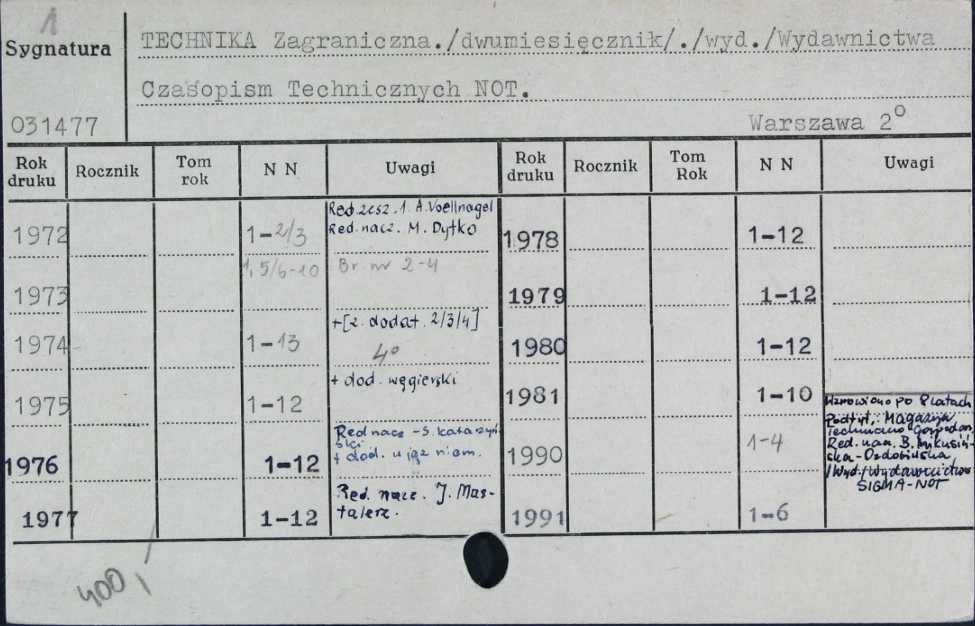 1
Sygnatura
TECHNIKA Zagraniczna./dwumiesięcznik/./wyd./Wydawnictwa
Czasopism Technicznych NOT.
031477
Warszawa 2°
Rok druku Rocznik Tom rok N N Uwagi Rok druku Rocznik Tom Rok N N Uwagi
1972 1-2/3 Red. zesz. 1. A. Voellnagel
Red. nacz. M. Dytko
1973 1, 5/6-10 Br. nr 2-4
1974 1-13 +[z. dodat. 2/3/4]
4°
1975 1-12 + dod. węgierski
1976 1-12 Red nacz - S. Kataszyń-
ski
+ dod. w jęz niem.
1977 1-12 Red. nacz. J. Mas-
talerz.
1978 1-12
1979 1-12
1980 1-12
1981 1-10
1990 1-4 Wznowiono po 8 latach
Podtyt. Magazyn
Techniczno Gospodar.
Red. nacz. B. Mikusiń-
ska-Ozdobińska
/Wyd./Wydawnictwo
SIGMA-NOT
1991 1-6
400,